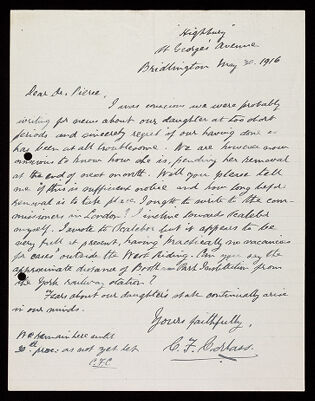 Highbury
St George's Avenue
Bridlington May 30. 1916
Dear Dr. Pierce,
I was conscious we were probably
writing for news about our daughter at too short
periods and sincerely regret if our having done so
has been at all troublesome. We are however now
anxious to know how she is, pending her removal
at the end of next month. Will you please tell
me if this is sufficient notice and how long before
removal is to take place I ought to write to the com-
missioners in London? I incline toward Scalebor
myself. I wrote to Scalebor but it appears to be
very full at present, having "practically no vacancies
for cases" outside the West Riding. Can you say the
approximate distance of Booth Park Institution from
the York railway station?
Fears about our daughter's state continually arise
in our minds.
Yours faithfully,
C. F.
We remain here until
30th prox: as not yet let
C.F.C